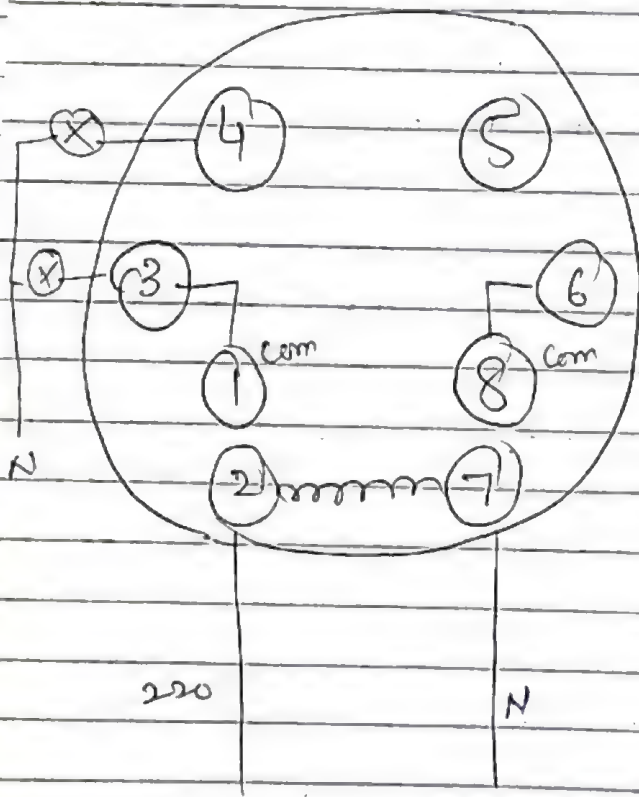 4 5
3 6
1 com 8 com
N
2 7
220 N